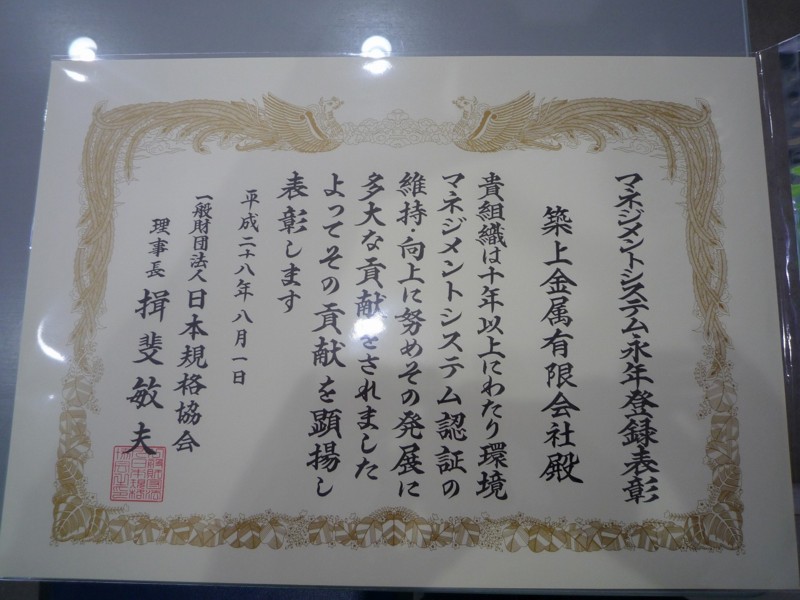 マネジメントシステム永年登録表彰
築上金属有限会社殿
貴組織は十年以上にわたり環境
マネジメントシステム認証の
維持・向上に努めその発展に
多大な貢献をされました
よってその貢献を顕揚し
表彰します
平成二十八年八月一日
一般財団法人日本規格協会
理事長 揖斐敏夫